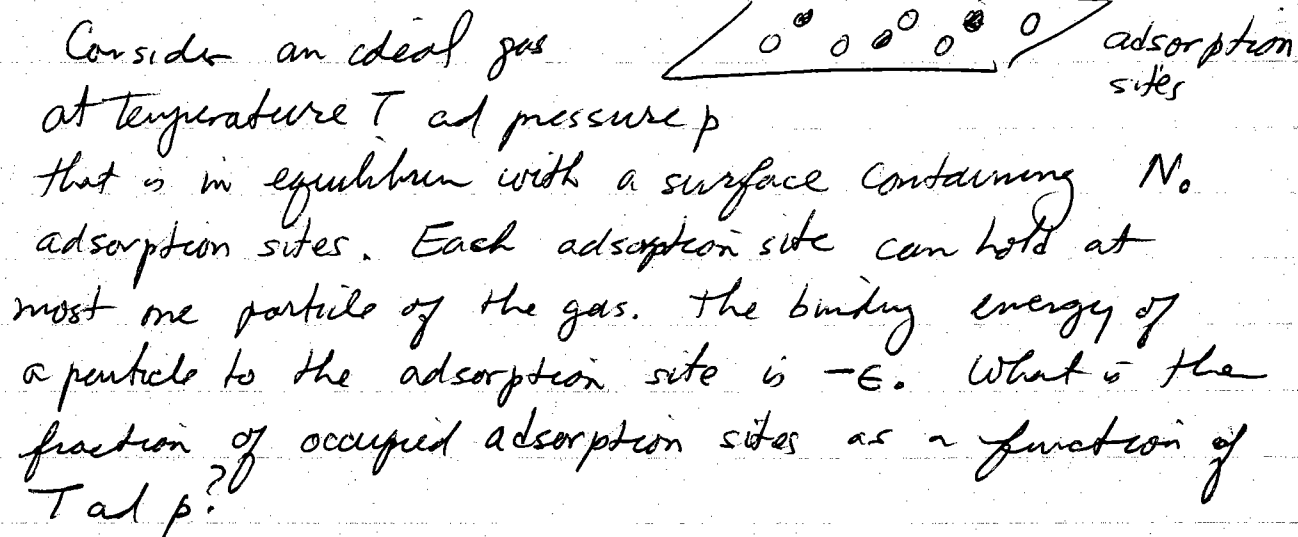 Consider an ideal gas
adsorption
sites
at temperature T ad pressure p
that is in equilibrium with a surface containing N₀
adsorption sites. Each adsorption site can hold at
most one particle of the gas. The binding energy of
a particle to the adsorption site is -ϵ. What is the
fraction of occupied adsorption sites as a function of
T ad p?